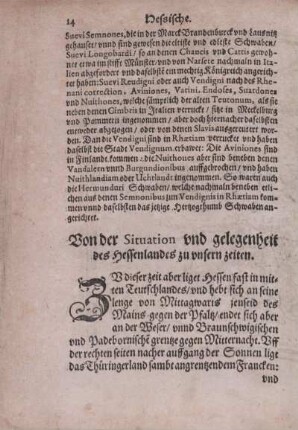 14 Hessische.
Suevi Semnones, die in der Marck Brandenburck vnd Lausnitz
gehauset / vnnd sind gewesen die eltiste vnd edleste Schwaben /
Suevi Longobardi / so an denen Chaucis vnd Cattis gewoh-
net etwa im stifft Münster / vnd von
abgefordert vnd daselbst ein mechtig Königreich angerich-
tet haben: Suevi Reudigni oder auch Vendigni nach des Rhe-
nani correction, Aviniones, Varini, Endoses, Suardones
vnd Nuithones, welche sämptlich der alten Teutonum, als sie
neben denen Cimbris in Italien verruckt / sitz in Meckelburg
vnd Pommern ingenommen / aber doch hiernacher daselbsten
entweder abgezogen / oder von denen Slavis ausgereutet wor-
den. Dan die Vendigni sind in Rhætium verrucket vnd haben
daselbst die Stadt Vendignum erbawt: Die Aviniones sind
in Finland kommen: die Nuithones aber sind beneben denen
Vandalern vnnd Burgundionibus auffgebrochen / vnd haben
Nuithlandiam oder Uchtlandt ingenommen. So waren auch
die Hermunduri Schwaben / welche nachmaln beneben etli-
chen aus denen Semnonibus zum Vendignis in Rhætiam kom-
men vnnd daselbsten das jetzige Hertzogthumb Schwaben an-
gerichtet.
Von der Situation vnd gelegenheit
des Hessenlandes zu vnsern zeiten.
ZV dieser zeit aber liget Hessen fast in mit-
ten Teutschlandes / vnd hebt sich an seine
lenge von Mittagwarts jenseid des
Mains gegen der Pfaltz / endet sich aber
an der Weser / vnnd Braunschwigischen
vnd Padebornischē grentze gegen Mitternacht. Vff
der rechten seiten nacher auffgang der Sonnen lige
das Thüringerland sambt angrentzendem Francken:
vnd